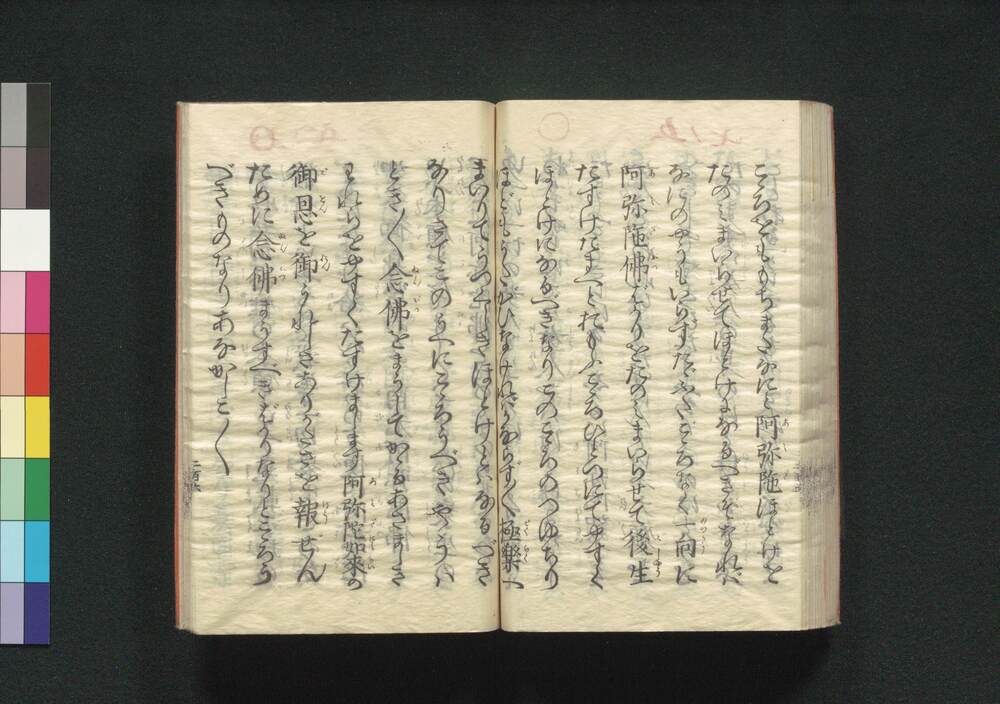 こゝろをともちまたなにと阿弥陁ほとけを
たのみまいらせてほとけになるへきそなれは
なにのやうもいらすたゝふたこゝろなく一向に
阿弥陁佛はかりをたのみまいらせて後生
たすけたまへとおもふこゝろひとつにてやすく
ほとけになるへきなりこのこゝろのつゆちり
ほともうたかひなけれはかならす〳〵極樂へ
まいりてうつくしきほとけとはなるへき
なりさてこのうへにこゝろうへきやうは
とき〳〵念佛をまうしてかゝるあさましき
われらをやすくたすけまします阿弥陀如來の
御恩を御うれしさありかたさを報せん
ために念佛まうすへきはかりなりとこゝろう
へきものなりあなかしこ〳〵
二百六